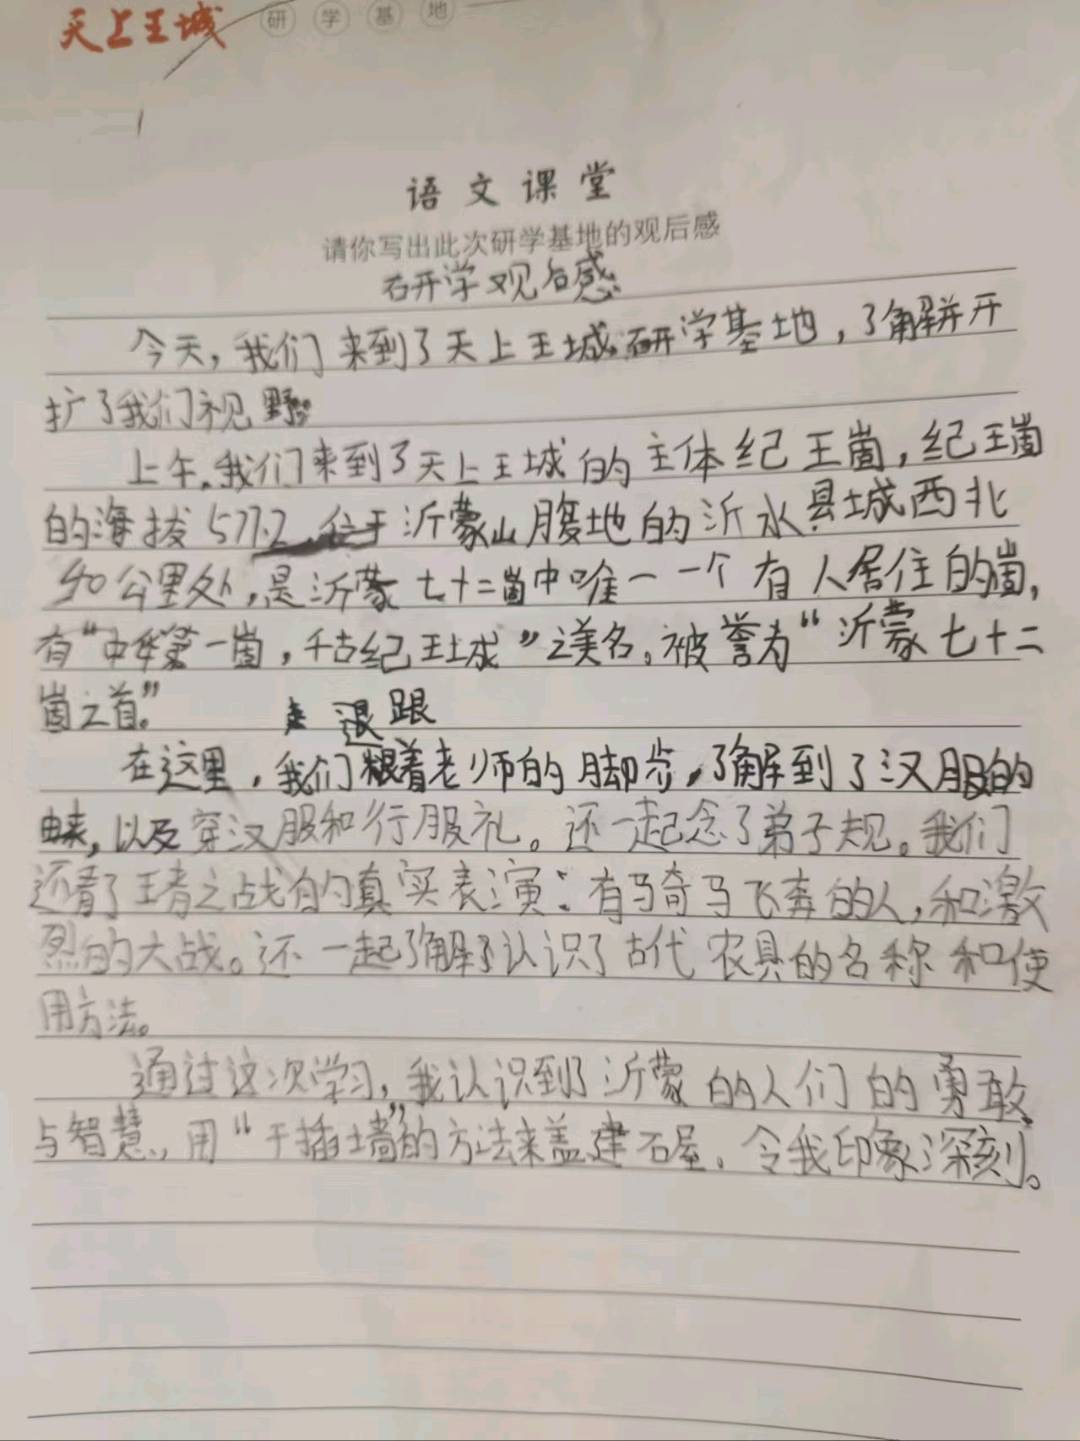 天上王城 研学基地
语文课堂
请你写出此次研学基地的观后感
研学观后感
今天，我们来到了天上王城研学基地，了解并开
扩了我们视野。
上午，我们来到了天上王城的主体纪王崮，纪王崮
的海拔577.2，位于沂蒙山腹地的沂水县城西北
40公里处，是沂蒙七十二崮中唯一一个有人居住的崮，
有“中华第一崮，千古纪王城”之美名。被誉为“沂蒙七十二
崮之首”。
退跟
在这里，我们跟着老师的脚步，了解到了汉服的
由来，以及穿汉服和行服礼。还一起念了弟子规。我们
还看了王者之战的真实表演：有马奇马飞奔的人，和激
烈的大战。还一起了解了认识了古代农具的名称和使
用方法。
通过这次学习，我认识到了沂蒙的人们的勇敢
与智慧，用“干插墙”的方法来盖建石屋，令我印象深刻。